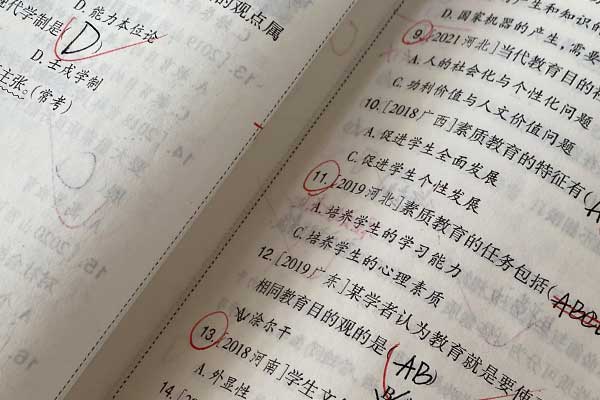 D. 能力本位论
的观点属
代学制是(D)
D. 壬戌学制
主张。(常考)
D. 国家机器的产生,需要
9.[2021河北]当代教育目的
A. 人的社会化与个性化问题
C. 功利价值与人文价值问题
10.[2018广西]素质教育的特征有(
A. 促进学生全面发展
C. 促进学生个性发展
11.[2019河北]素质教育的任务包括(ABC
A. 培养学生的学习能力
C. 培养学生的心理素质
12.[2019广东]某学者认为教育就是要使
相同教育目的观的是(AB)
涂尔干
13.[2018河南]学生文
A. 外显性
14.